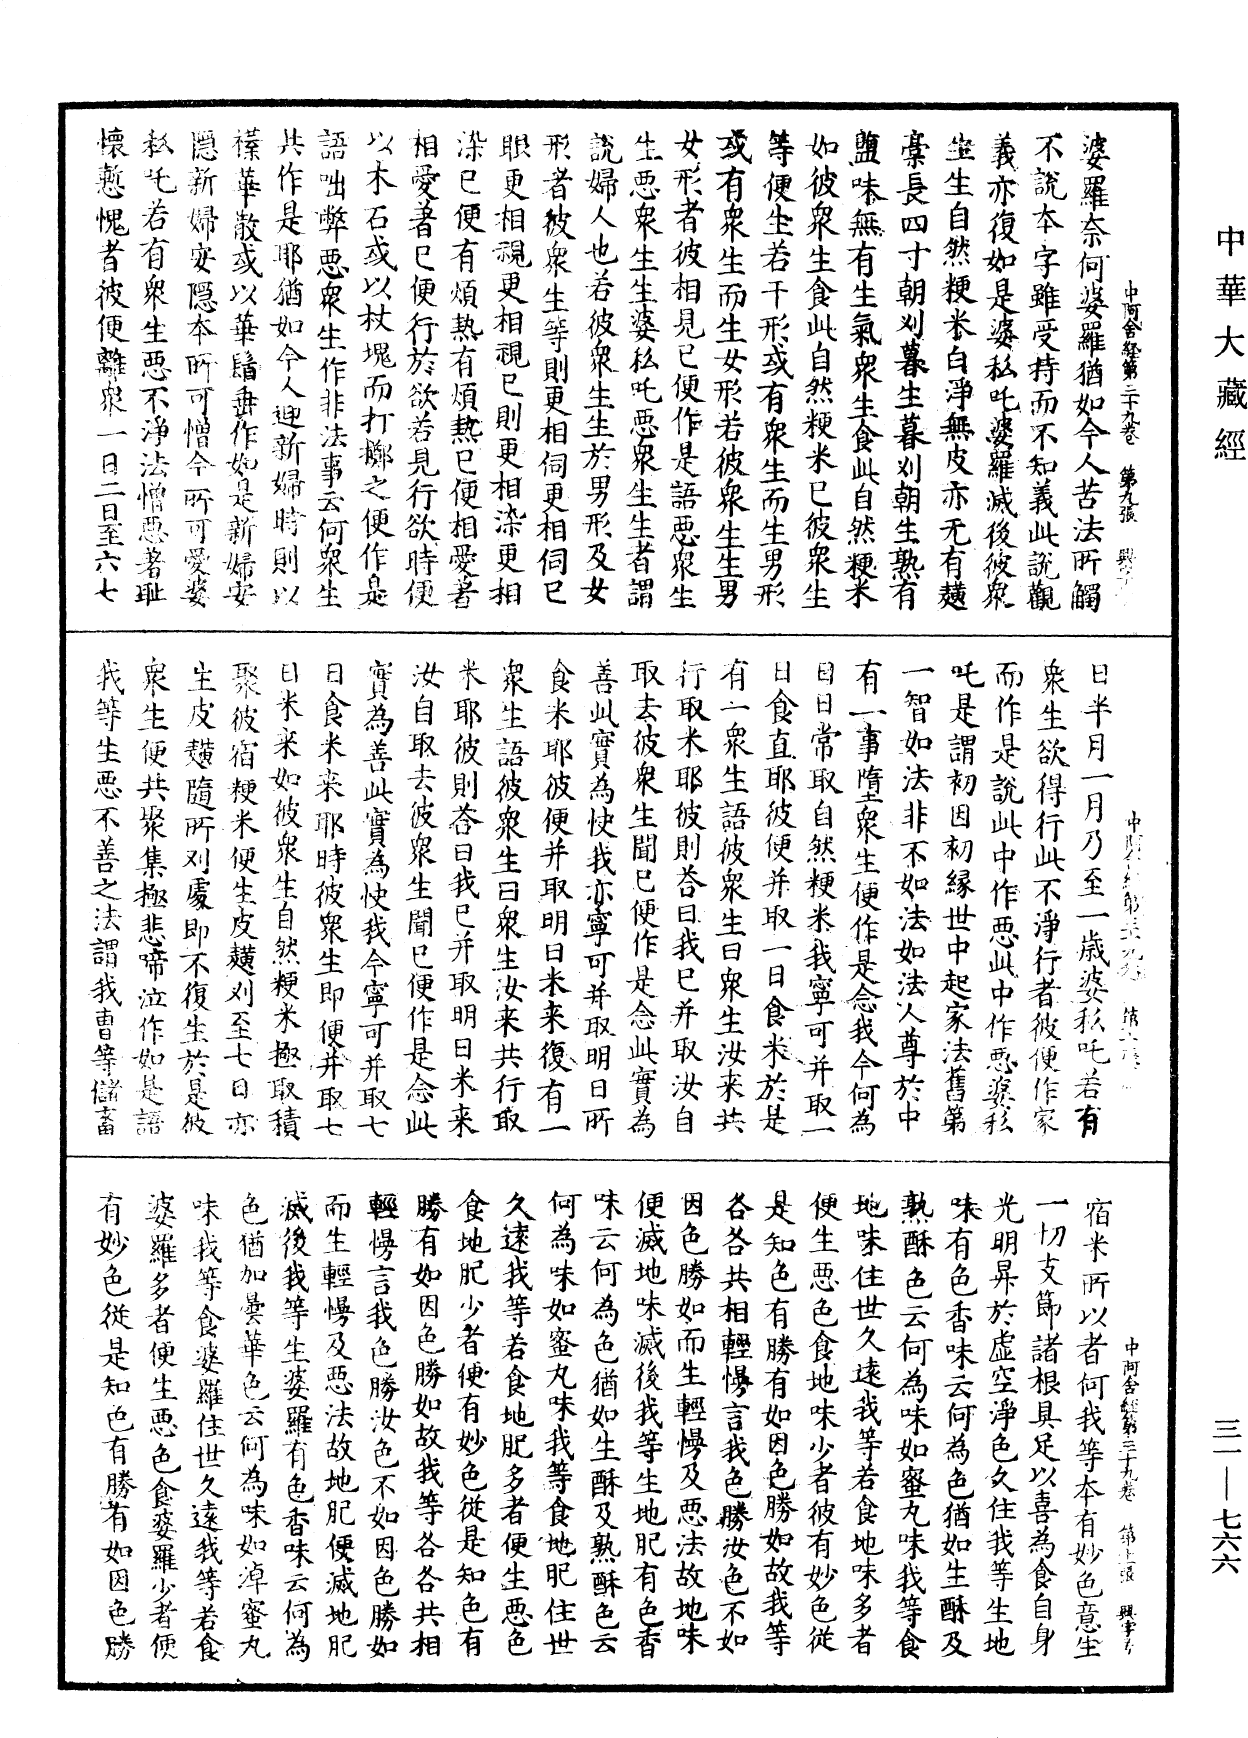 中華大藏經
三一—七六六
中阿含經第三十九卷 第九張
婆羅奈何婆羅猶如今人苦法所觸
不說本字雖受持而不知義此說觀
義亦復如是婆私吒婆羅滅後彼衆
生生自然粳米白淨無皮亦无有𪍿
藁長四寸朝刈暮生暮刈朝生熟有
鹽味無有生氣衆生食此自然粳米
如彼衆生食此自然粳米已彼衆生
等便生若干形或有衆生而生男形
或有衆生而生女形若彼衆生生男
女形者彼相見已便作是語惡衆生
生惡衆生生婆私吒惡衆生生者謂
說婦人也若彼衆生生於男形及女
形者彼衆生等則更相伺更相伺已
眼更相視更相視已則更相染更相
染已便有煩熱有煩熱已便相愛著
相愛著已便行於欲若見行欲時便
以木石或以杖塊而打擲之便作是
語咄弊惡衆生作非法事云何衆生
共作是耶猶如今人迎新婦時則以
襆華散或以華鬘垂作如是新婦安
隱新婦安隱本所可憎今所可愛婆
私吒若有衆生惡不淨法憎惡著耻
懷慙愧者彼便離衆一日二日至六七
日半月一月乃至一歲婆私吒若有
衆生欲得行此不淨行者彼便作家
而作是說此中作惡此中作惡婆私
吒是謂初因初緣世中起家法舊第
一智如法非不如法如法人尊於中
有一事墮衆生便作是念我今何為
日日常取自然粳米我寧可并取一
日食直耶彼便并取一日食米於是
有一衆生語彼衆生曰衆生汝来共
行取米耶彼則荅曰我已并取汝自
取去彼衆生聞已便作是念此實為
善此實為快我亦寧可并取明日所
食米耶彼便并取明日米来復有一
衆生語彼衆生曰衆生汝来共行取
米耶彼則荅曰我已并取明日米来
汝自取去彼衆生聞已便作是念此
實為善此實為快我今寧可并取七
日食米来耶時彼衆生即便并取七
日米来如彼衆生自然粳米極取積
聚彼宿粳米便生皮𪍿刈至七日亦
生皮𪍿隨所刈處即不復生於是彼
衆生便共聚集極悲啼泣作如是語
我等生惡不善之法謂我曹等儲畜
中阿含經第三十九卷 第十一張
宿米所以者何我等本有妙色意生
一切支節諸根具足以喜為食自身
光明昇於虛空淨色久住我等生地
味有色香味云何為色猶如生酥及
熟酥色云何為味如蜜丸味我等食
地味住世久遠我等若食地味多者
便生惡色食地味少者彼有妙色從
是知色有勝有如因色勝如故我等
各各共相輕慢言我色勝汝色不如
因色勝如而生輕慢及惡法故地味
便滅地味滅後我等生地肥有色香
味云何為色猶如生酥及熟酥色云
何為味如蜜丸味我等食地肥住世
久遠我等若食地肥多者便生惡色
食地肥少者便有妙色從是知色有
勝有如因色勝如故我等各各共相
輕慢言我色勝汝色不如因色勝如
而生輕慢及惡法故地肥便滅地肥
滅後我等生婆羅有色香味云何為
色猶加曇華色云何為味如淖蜜丸
味我等食婆羅住世久遠我等若食
婆羅多者便生惡色食婆羅少者便
有妙色從是知色有勝有如因色勝